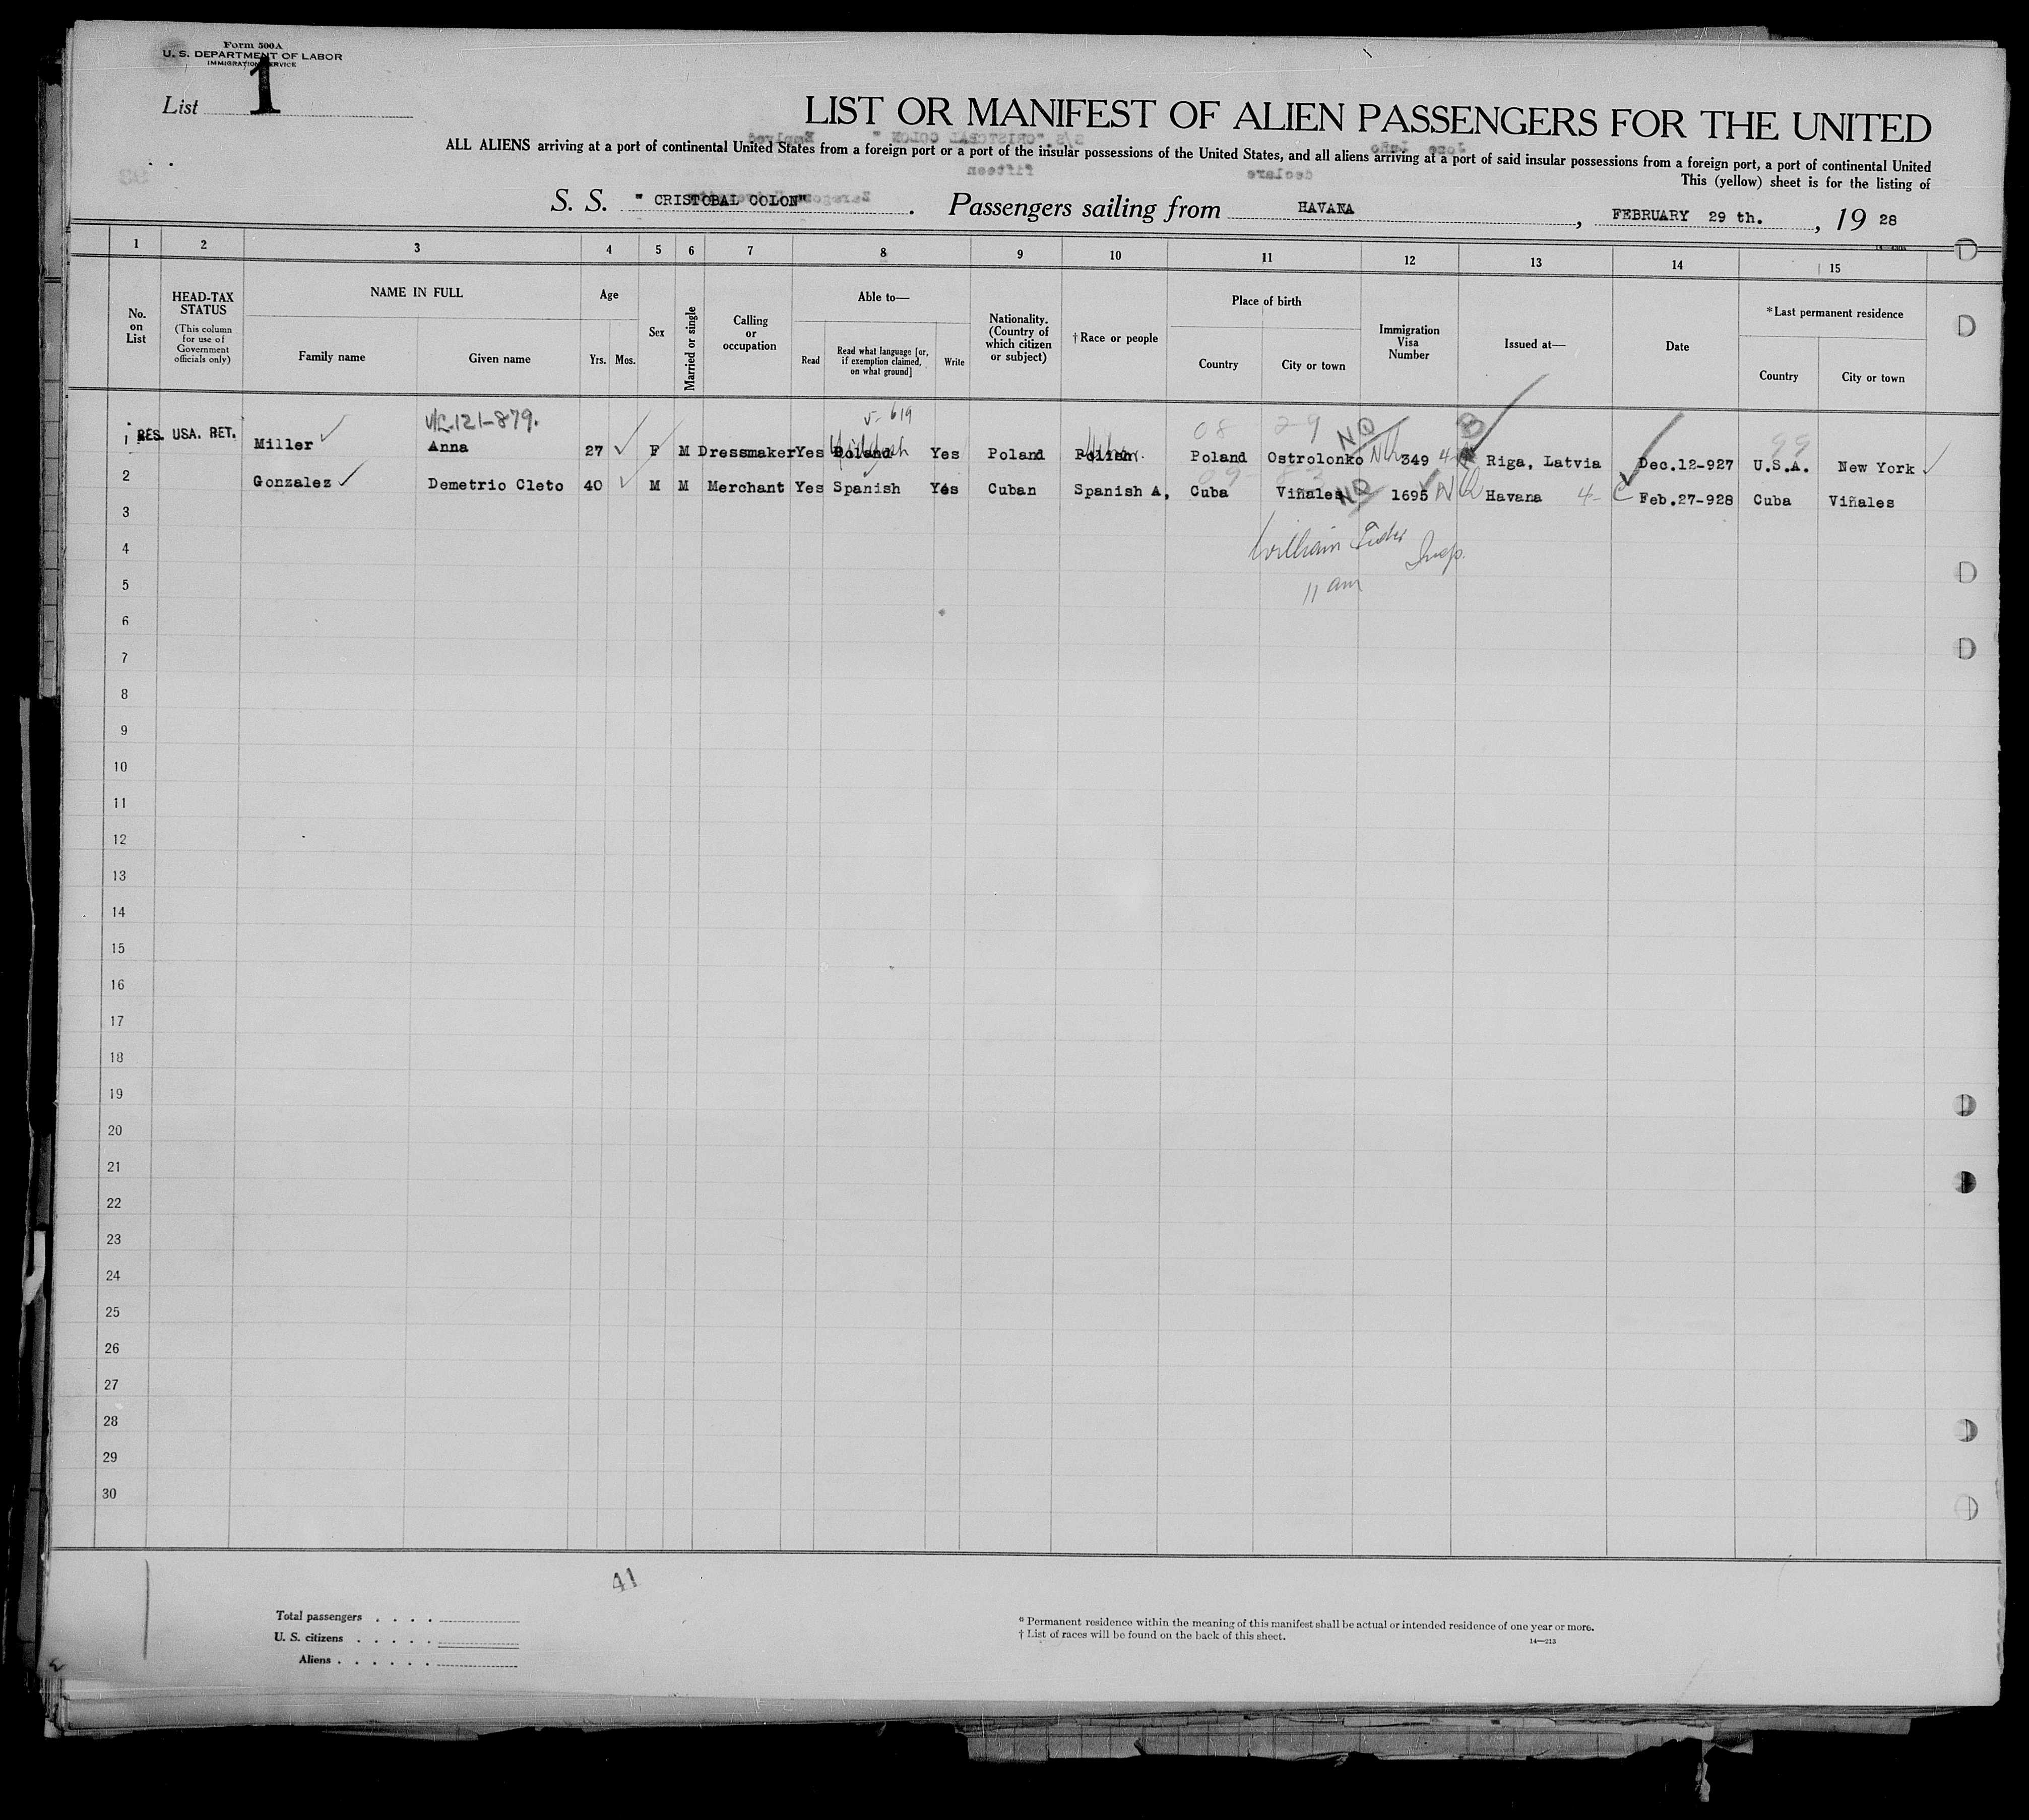 Form 500A
U. S. DEPARTMENT OF LABOR
IMMIGRATION SERVICE
List 1
LIST OR MANIFEST OF ALIEN PASSENGERS FOR THE UNITED
ALL ALIENS arriving at a port of continental United States from a foreign port or a port of the insular possessions of the United States, and all aliens arriving at a port of said insular possessions from a foreign port, a port of continental United
This (yellow) sheet is for the listing of
S. S. " CRISTOBAL COLON" . Passengers sailing from HAVANA , FEBRUARY 29 th. , 19 28
1 2 3 4 5 6 7 8 9 10 11 12 13 14 15
No. on List
HEAD-TAX STATUS
(This column for use of Government officials only)
NAME IN FULL
Family name Given name
Age
Yrs. Mos.
Sex
Married or single
Calling or occupation
Able to—
Read
Read what language [or, if exemption claimed, on what ground]
Write
Nationality. (Country of which citizen or subject)
† Race or people
Place of birth
Country City or town
Immigration Visa Number
Issued at—
Date
*Last permanent residence
Country City or town
121-879. 5- 619 08 29 NO 99
1 RES. USA. RET. Miller Anna 27 F M Dressmaker Yes Poland Yes Poland Polish Poland Ostrolonko NQ 349 4- Riga, Latvia Dec.12-927 U.S.A. New York
2 Gonzalez Demetrio Cleto 40 M M Merchant Yes Spanish Yes Cuban Spanish A, Cuba Viñales NO 1695 NQ Havana 4- C Feb.27-928 Cuba Viñales
3
4 William Insp.
5 11 am
6
7
8
9
10
11
12
13
14
15
16
17
18
19
20
21
22
23
24
25
26
27
28
29
30
41
Total passengers . . . .
U. S. citizens . . . . .
Aliens . . . . . .
* Permanent residence within the meaning of this manifest shall be actual or intended residence of one year or more.
† List of races will be found on the back of this sheet.
14—213